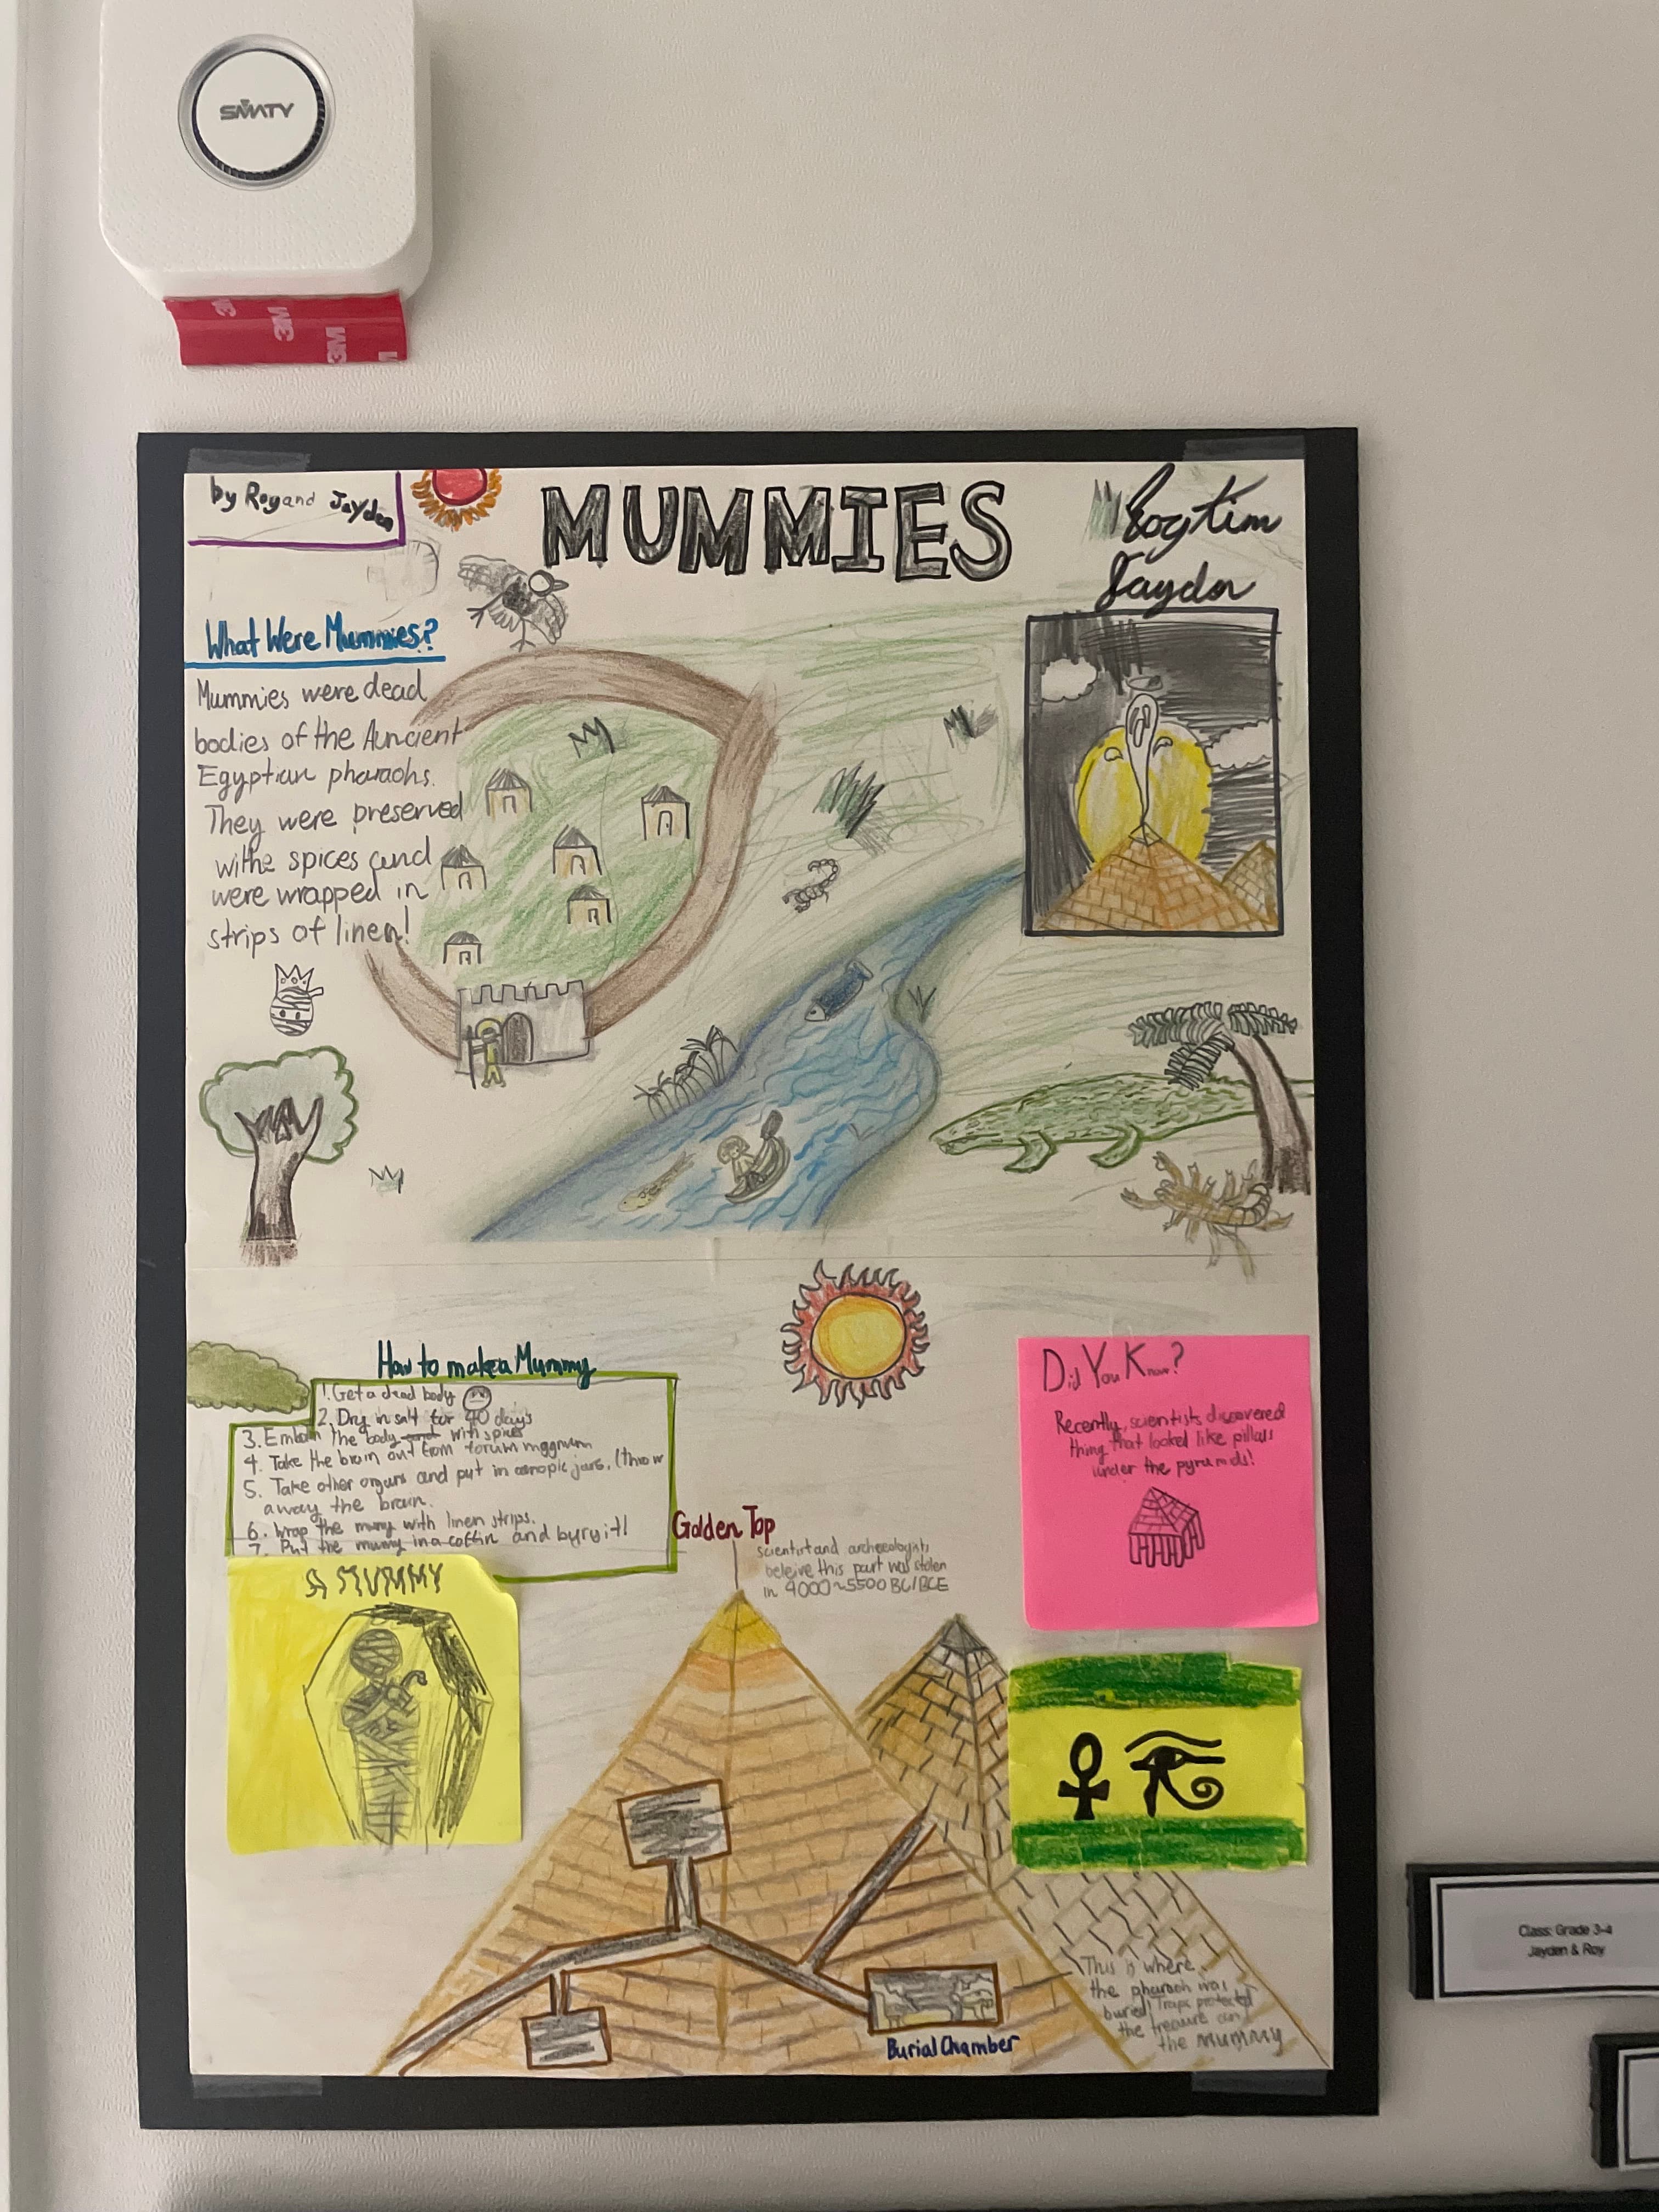 SMATY
3M
3M
3M
by Roy and Jayden
MUMMIES
Jayden
What Were Mummies?
Mummies were dead
bodies of the Auncient
Egyptian pharaohs.
They were preserved
withe spices and
were wrapped in
strips of linen!
How to make a Mummy
1. Get a dead body
2. Dry in salt for 40 days
3. Embalm the body and with spices
4. Take the brain out from forum mggnum
5. Take other organs and put in canopic jars. (throw
away the brain.
6. Wrap the mumy with linen strips.
7. Put the mumy in a coffin and bury it!
A MUMMY
Golden Top
scientist and archeeologists
beleive this part was stolen
in 4000~5500 BC/BCE
Did You Know?
Recently, scientists discovered
thing that looked like pillars
under the pyramids!
This is where
the pharaoh was
buried! Traps protected
the treasure and
the mummy
Burial Chamber
Class: Grade 3-4
Jayden & Roy